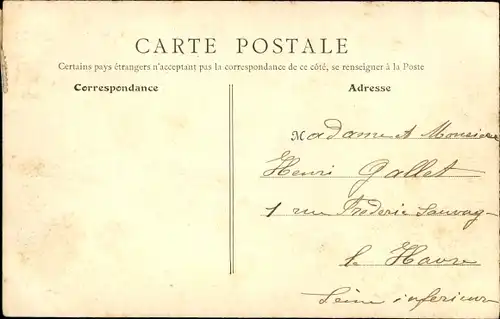 CARTE POSTALE
Certains pays étrangers n'acceptant pas la correspondance de ce côté, se renseigner à la Poste
Correspondance
Adresse
Madame et Monsieur
Henri Gallet
1 rue Frederic Sauvag
le Havre
Seine inferieur